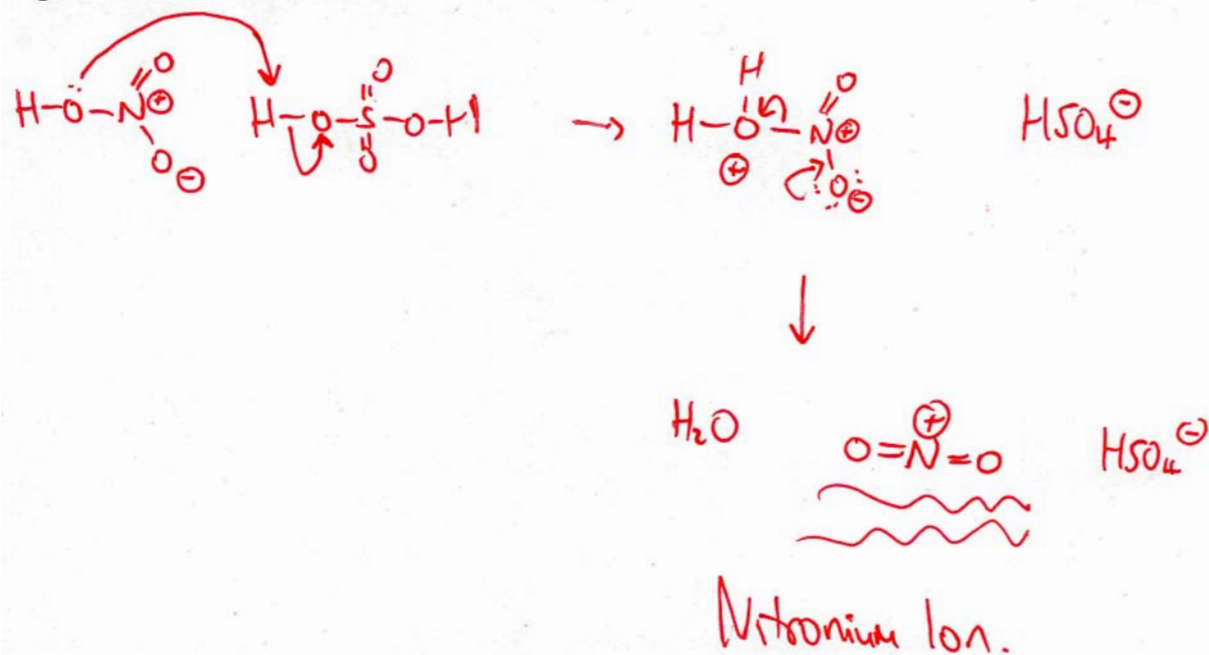 H-O-N⊕ =O O⊖ H-O-S-O-H =O =O → H-O-N⊕ H ⊕ =O O⊖ HSO₄⊖
H₂O O=N⊕=O HSO₄⊖
Nitronium Ion.